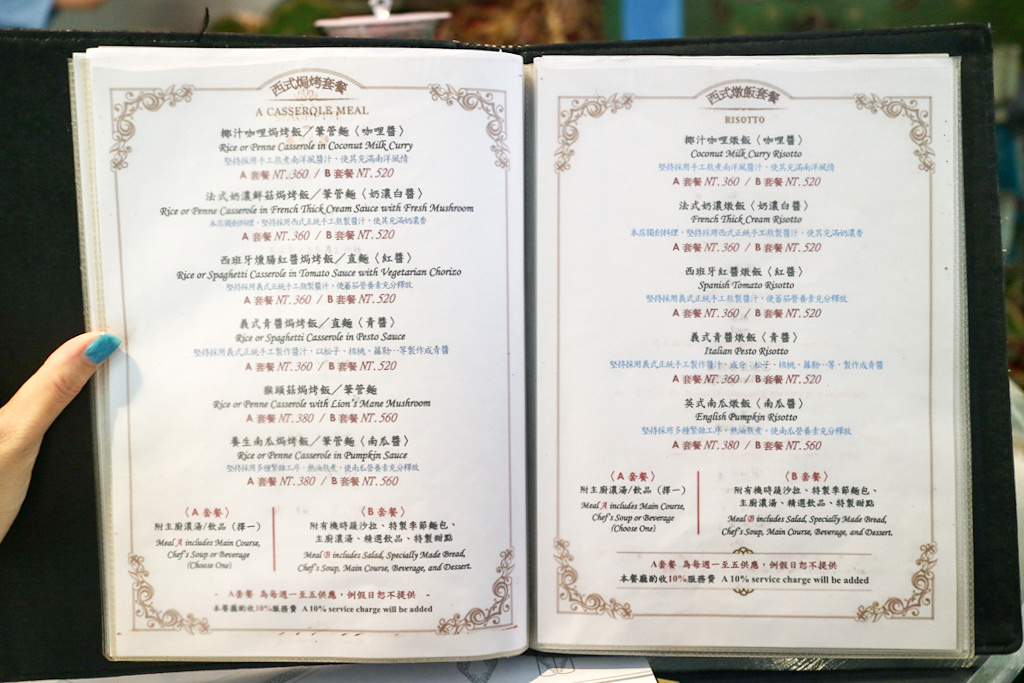 西式焗烤套餐
A CASSEROLE MEAL
椰汁咖哩焗烤飯/筆管麵〈咖哩醬〉
Rice or Penne Casserole in Coconut Milk Curry
堅持採用手工熬煮南洋風醬汁，使其充滿南洋風情
A 套餐 NT.360 / B 套餐 NT.520
法式奶濃鮮菇焗烤飯/筆管麵〈奶濃白醬〉
Rice or Penne Casserole in French Thick Cream Sauce with Fresh Mushroom
本店獨創料理，堅持採用西式正統手工熬製醬汁，使其充滿奶濃香
A 套餐 NT.360 / B 套餐 NT.520
西班牙燻腸紅醬焗烤飯/直麵〈紅醬〉
Rice or Spaghetti Casserole in Tomato Sauce with Vegetarian Chorizo
堅持採用義式正統手工熬製醬汁，使蕃茄營養素充分釋放
A 套餐 NT.360 / B 套餐 NT.520
義式青醬焗烤飯/直麵〈青醬〉
Rice or Spaghetti Casserole in Pesto Sauce
堅持採用義式正統手工製作醬汁，以松子、核桃、蘿勒…等製作成青醬
A 套餐 NT.360 / B 套餐 NT.520
猴頭菇焗烤飯/筆管麵
Rice or Penne Casserole with Lion's Mane Mushroom
A 套餐 NT.380 / B 套餐 NT.560
養生南瓜焗烤飯/筆管麵〈南瓜醬〉
Rice or Penne Casserole in Pumpkin Sauce
堅持採用多種繁雜工序，熱油熬煮，使南瓜營養素充分釋放
A 套餐 NT.380 / B 套餐 NT.560
〈A 套餐〉
附主廚濃湯/飲品（擇一）
Meal A includes Main Course,
Chef's Soup or Beverage
(Choose One)
〈B 套餐〉
附有機時蔬沙拉、特製季節麵包、
主廚濃湯、精選飲品、特製甜點
Meal B includes Salad, Specially Made Bread,
Chef's Soup, Main Course, Beverage, and Dessert.
- A套餐 為每週一至五供應，例假日恕不提供 -
本餐廳酌收10%服務費 A 10% service charge will be added
西式燉飯套餐
RISOTTO
椰汁咖哩燉飯〈咖哩醬〉
Coconut Milk Curry Risotto
堅持採用手工熬煮南洋風醬汁，使其充滿南洋風情
A 套餐 NT.360 / B 套餐 NT.520
法式奶濃燉飯〈奶濃白醬〉
French Thick Cream Risotto
本店獨創料理，堅持採用西式正統手工熬製醬汁，使其充滿奶濃香
A 套餐 NT.360 / B 套餐 NT.520
西班牙紅醬燉飯〈紅醬〉
Spanish Tomato Risotto
堅持採用義式正統手工熬製醬汁，使蕃茄營養素充分釋放
A 套餐 NT.360 / B 套餐 NT.520
義式青醬燉飯〈青醬〉
Italian Pesto Risotto
堅持採用義式正統手工製作醬汁，成分：松子、核桃、蘿勒…等，製作成青醬
A 套餐 NT.360 / B 套餐 NT.520
英式南瓜燉飯〈南瓜醬〉
English Pumpkin Risotto
堅持採用多種繁雜工序，熱油熬煮，使南瓜營養素充分釋放
A 套餐 NT.380 / B 套餐 NT.560
〈A 套餐〉
附主廚濃湯/飲品（擇一）
Meal A includes Main Course,
Chef's Soup or Beverage
(Choose One)
〈B 套餐〉
附有機時蔬沙拉、特製季節麵包、
主廚濃湯、精選飲品、特製甜點
Meal B includes Salad, Specially Made Bread,
Chef's Soup, Main Course, Beverage, and Dessert.
A套餐 為每週一至五供應，例假日恕不提供
本餐廳酌收10%服務費 A 10% service charge will be added